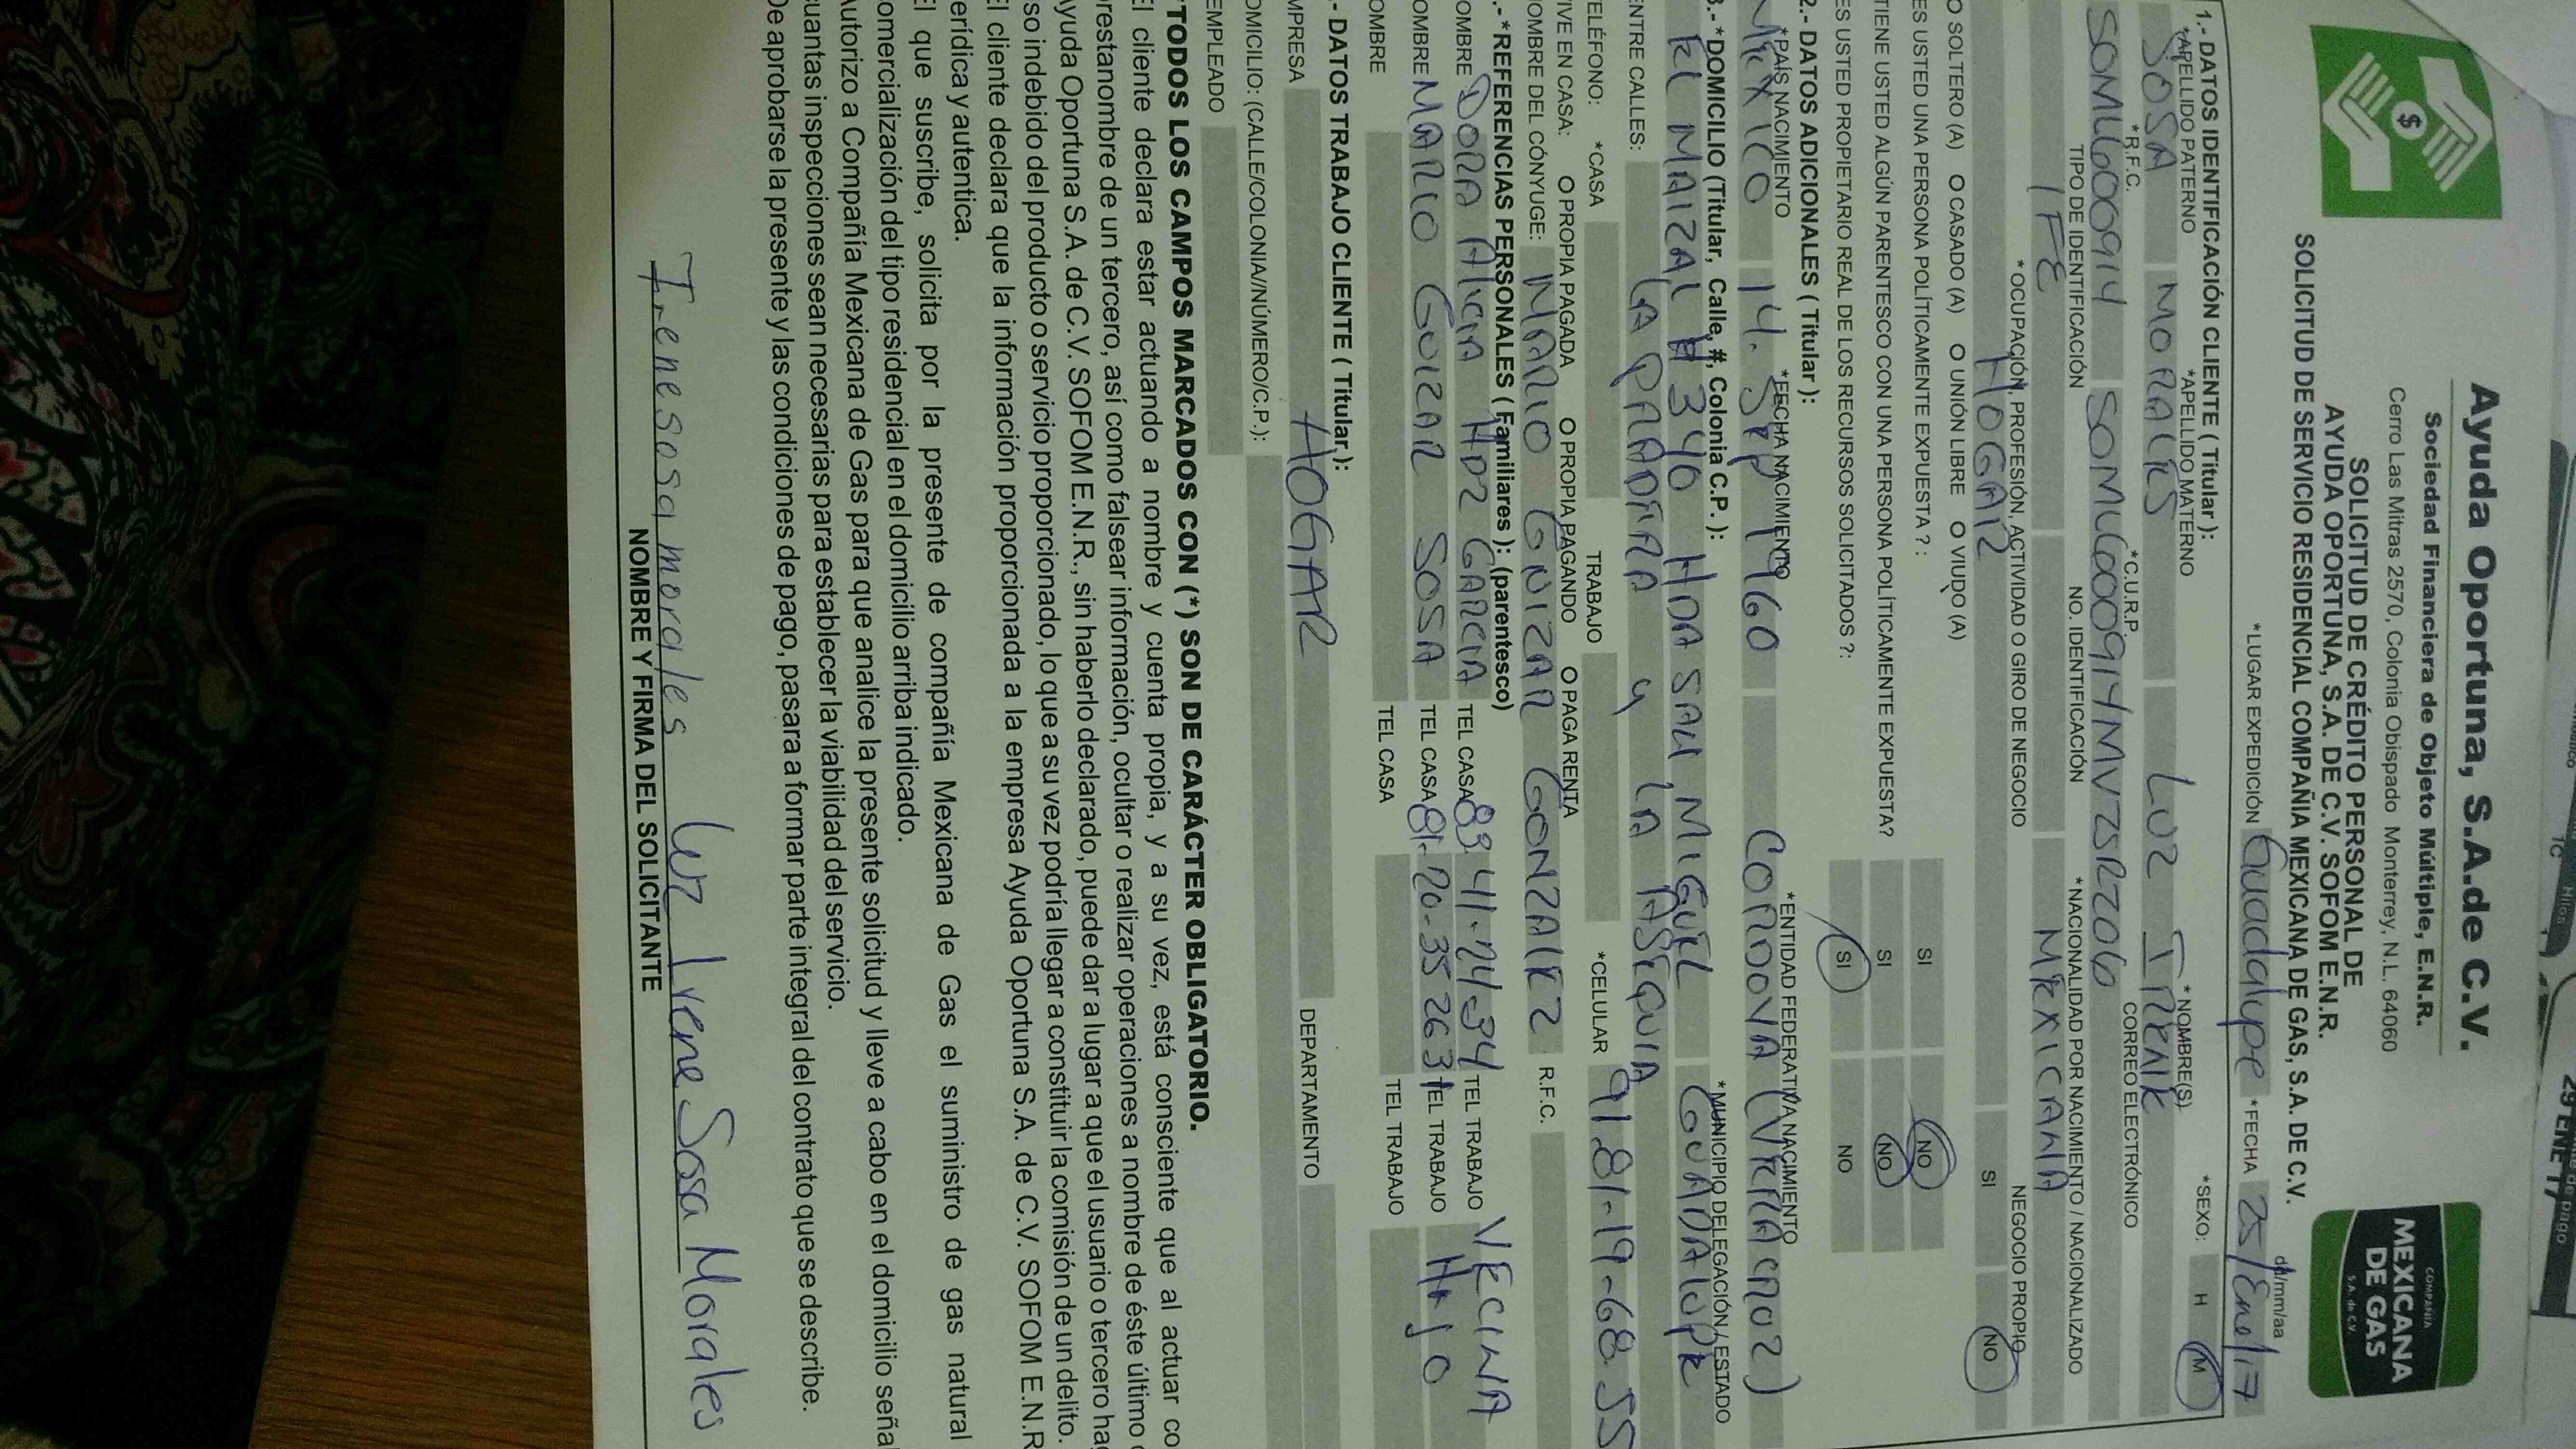 29 ENE 17
Ayuda Oportuna, S.A.de C.V.
Sociedad Financiera de Objeto Múltiple, E.N.R.
Cerro Las Mitras 2570, Colonia Obispado Monterrey, N.L. 64060
$
COMPAÑIA
MEXICANA
DE GAS
S.A. de C.V.
SOLICITUD DE CRÉDITO PERSONAL DE
AYUDA OPORTUNA, S.A. DE C.V. SOFOM E.N.R.
SOLICITUD DE SERVICIO RESIDENCIAL COMPAÑIA MEXICANA DE GAS, S.A. DE C.V.
dd/mm/aa
*LUGAR EXPEDICIÓN Guadalupe *FECHA 25/Enel17
1.- DATOS IDENTIFICACIÓN CLIENTE ( Titular ):
*APELLIDO PATERNO *APELLIDO MATERNO *NOMBRE(S) *SEXO: H M
SOSA MORALES LUZ IRENE
*R.F.C. *C.U.R.P. CORREO ELECTRÓNICO
SOMU600914 SOMU600914MVZSRZ06
TIPO DE IDENTIFICACIÓN NO. IDENTIFICACIÓN *NACIONALIDAD POR NACIMIENTO / NACIONALIZADO
IFE MEXICANA
*OCUPACIÓN, PROFESIÓN, ACTIVIDAD O GIRO DE NEGOCIO NEGOCIO PROPIO
HOGAR SI NO
O SOLTERO (A) O CASADO (A) O UNIÓN LIBRE O VIUDO (A)
ES USTED UNA PERSONA POLÍTICAMENTE EXPUESTA ? : SI NO
TIENE USTED ALGÚN PARENTESCO CON UNA PERSONA POLÍTICAMENTE EXPUESTA? SI NO
ES USTED PROPIETARIO REAL DE LOS RECURSOS SOLICITADOS ?: SI NO
2.- DATOS ADICIONALES ( Titular ):
*PAÍS NACIMIENTO *FECHA NACIMIENTO *ENTIDAD FEDERATIVA NACIMIENTO
MEXICO 14. SEP 1960 CORDOVA (VERACRUZ)
3.- *DOMICILIO (Titular, Calle, #, Colonia C.P. ): *MUNICIPIO DELEGACIÓN / ESTADO
EL MAIZAL # 340 HDA SAN MIGUEL GUADALUPE
ENTRE CALLES: LA PRADERA Y LA ASEQUIA
TELÉFONO: *CASA TRABAJO *CELULAR 9181-19-68 55
VIVE EN CASA: O PROPIA PAGADA O PROPIA PAGANDO O PAGA RENTA
NOMBRE DEL CÓNYUGE: MARIO GUIZAR GONZALEZ R.F.C.
.- *REFERENCIAS PERSONALES ( Familiares ): (parentesco)
OMBRE DORA ALICIA HDZ GARCIA TEL CASA 83 41-24-34 TEL TRABAJO VECINA
OMBRE MARIO GUIZAR SOSA TEL CASA 81-20-35 2631 TEL TRABAJO HIJO
OMBRE TEL CASA TEL TRABAJO
.- DATOS TRABAJO CLIENTE ( Titular ):
MPRESA HOGAR DEPARTAMENTO
OMICILIO: (CALLE/COLONIA//NÚMERO/C.P.):
EMPLEADO
*TODOS LOS CAMPOS MARCADOS CON (*) SON DE CARÁCTER OBLIGATORIO.
El cliente declara estar actuando a nombre y cuenta propia, y a su vez, está consciente que al actuar co
prestanombre de un tercero, así como falsear información, ocultar o realizar operaciones a nombre de éste último
Ayuda Oportuna S.A. de C.V. SOFOM E.N.R., sin haberlo declarado, puede dar a lugar a que el usuario o tercero ha
so indebido del producto o servicio proporcionado, lo que a su vez podría llegar a constituir la comisión de un delito.
El cliente declara que la información proporcionada a la empresa Ayuda Oportuna S.A. de C.V. SOFOM E.N.R
erídica y autentica.
El que suscribe, solicita por la presente de compañía Mexicana de Gas el suministro de gas natural
omercialización del tipo residencial en el domicilio arriba indicado.
Autorizo a Compañía Mexicana de Gas para que analice la presente solicitud y lleve a cabo en el domicilio seña
uantas inspecciones sean necesarias para establecer la viabilidad del servicio.
De aprobarse la presente y las condiciones de pago, pasara a formar parte integral del contrato que se describe.
Irene sosa morales Luz Irene Sosa Morales
NOMBRE Y FIRMA DEL SOLICITANTE